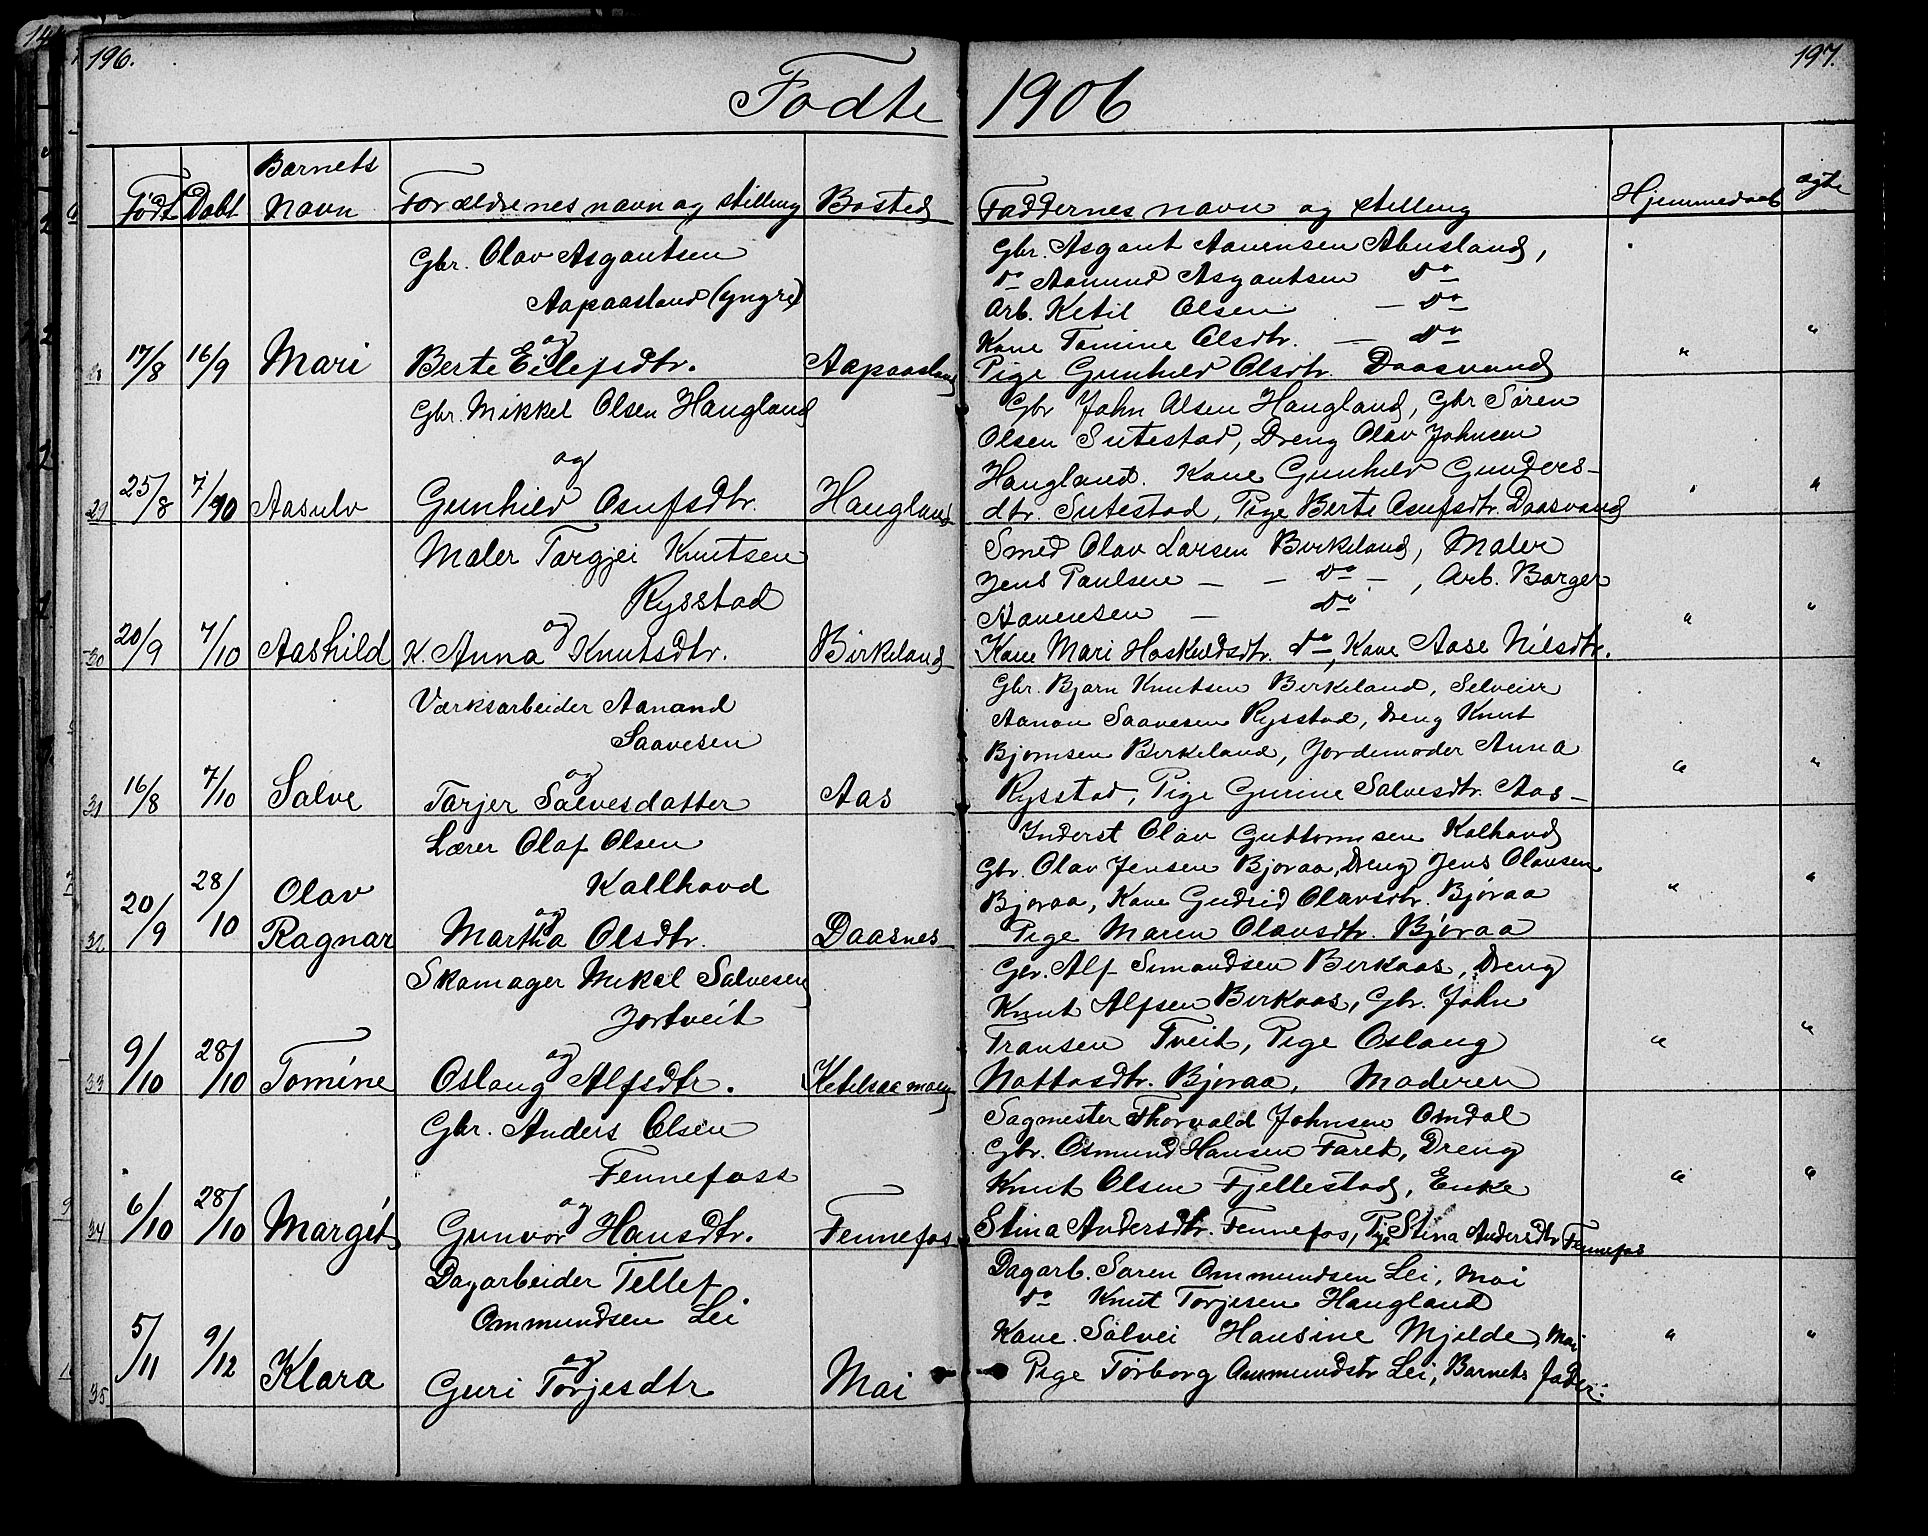 196.
197.
Fodte 1906
Barnets
Født Dobt Navn Forældrenes navn og stilling Bosted Faddernes navn og stilling Hjemmedaab ægte
Gbr. Olav Asgautsen
Aapaasland (yngre)
og
17/8 16/9 Mari Berte Eilefsdtr. Aapaasland
Gbr. Asgaut Aanensen Abusland,
do Aamund Asgautsen do
Arb. Ketil Olsen — do
Kone Tomine Olsdtr. — do
Pige Gunhild Olsdtr. Daasvand " "
Gbr. Mikkel Olsen Haugland
og
29 25/8 7/10 Aasulv Gunhild Osufsdtr. Haugland
Gbr John Olsen Haugland, Gbr Søren
Olsen Sutestad, Dreng Olav Johnsen
Haugland. Kone Gunhild Gunders-
dtr. Sutestad, Pige Berte Osufsdtr. Daasvand "
Maler Torgjei Knutsen
Rysstad
og
30 20/9 7/10 Aashild K. Anna Knutsdtr. Birkeland
Smed Olav Larsen Birkeland, Maler
Jens Paulsen — — do — , Arb. Borger
Aanensen — do
Kone Mari Hoskuldsdtr. do, Kone Aase Nilsdtr. " "
Værksarbeider Aanand
Saavesen
og
31 16/8 7/10 Salve Torjer Salvesdatter Aas
Gbr. Bjørn Knutsen Birkeland, Selveier
Aanon Saavesen Rysstad, Dreng Knut
Bjørnsen Birkeland, Jordemoder Anna
Rysstad, Pige Gurine Salvesdtr. Aas — " "
Lærer Olaf Olsen
Kallhovd
og
32 20/9 28/10 Olav
Ragnar Martha Olsdtr. Daasnes
Inderst Olav Guttormsen Kalhovd
Gbr. Olav Jensen Bjoraa, Dreng Jens Olavsen
Bjoraa, Kone Gudrid Olavsdtr. Bjøraa
Pige Maren Olavsdtr. Bjøraa " "
Skomager Mikal Salvesen
Jortveit
og
33 9/10 28/10 Tomine Oslaug Alfsdtr. Ketelsaa moen
Gbr. Alf Simondsen Birkaas, Dreng
Knut Alfsen Birkaas, Gbr. John
Fransen Tveit, Pige Oslaug
Nottosdtr. Bjøraa, Moderen " "
Gbr. Anders Olsen
Fennefoss
og
34 6/10 28/10 Margit Gunvor Hansdtr. Fennefos
Sagmester Thorvald Johnsen Omdal
Gbr. Osmund Hansen Faret, Dreng
Knut Olsen Fjellestad, Enke
Stina Andersdtr. Fennefos, Pige Stina Andersdtr Fennefos " "
Dagarbeider Tellef
Ommundsen Lei
og
35 5/11 9/12 Klara Guri Torjesdtr Moi
Dagarb. Søren Ommundsen Lei, Moi
do Knut Torjesen Haugland
Kone. Sølvei Hansine Mjelde, Moi
Pige Torborg Ommundsdtr Lei, Barnets fader. " "